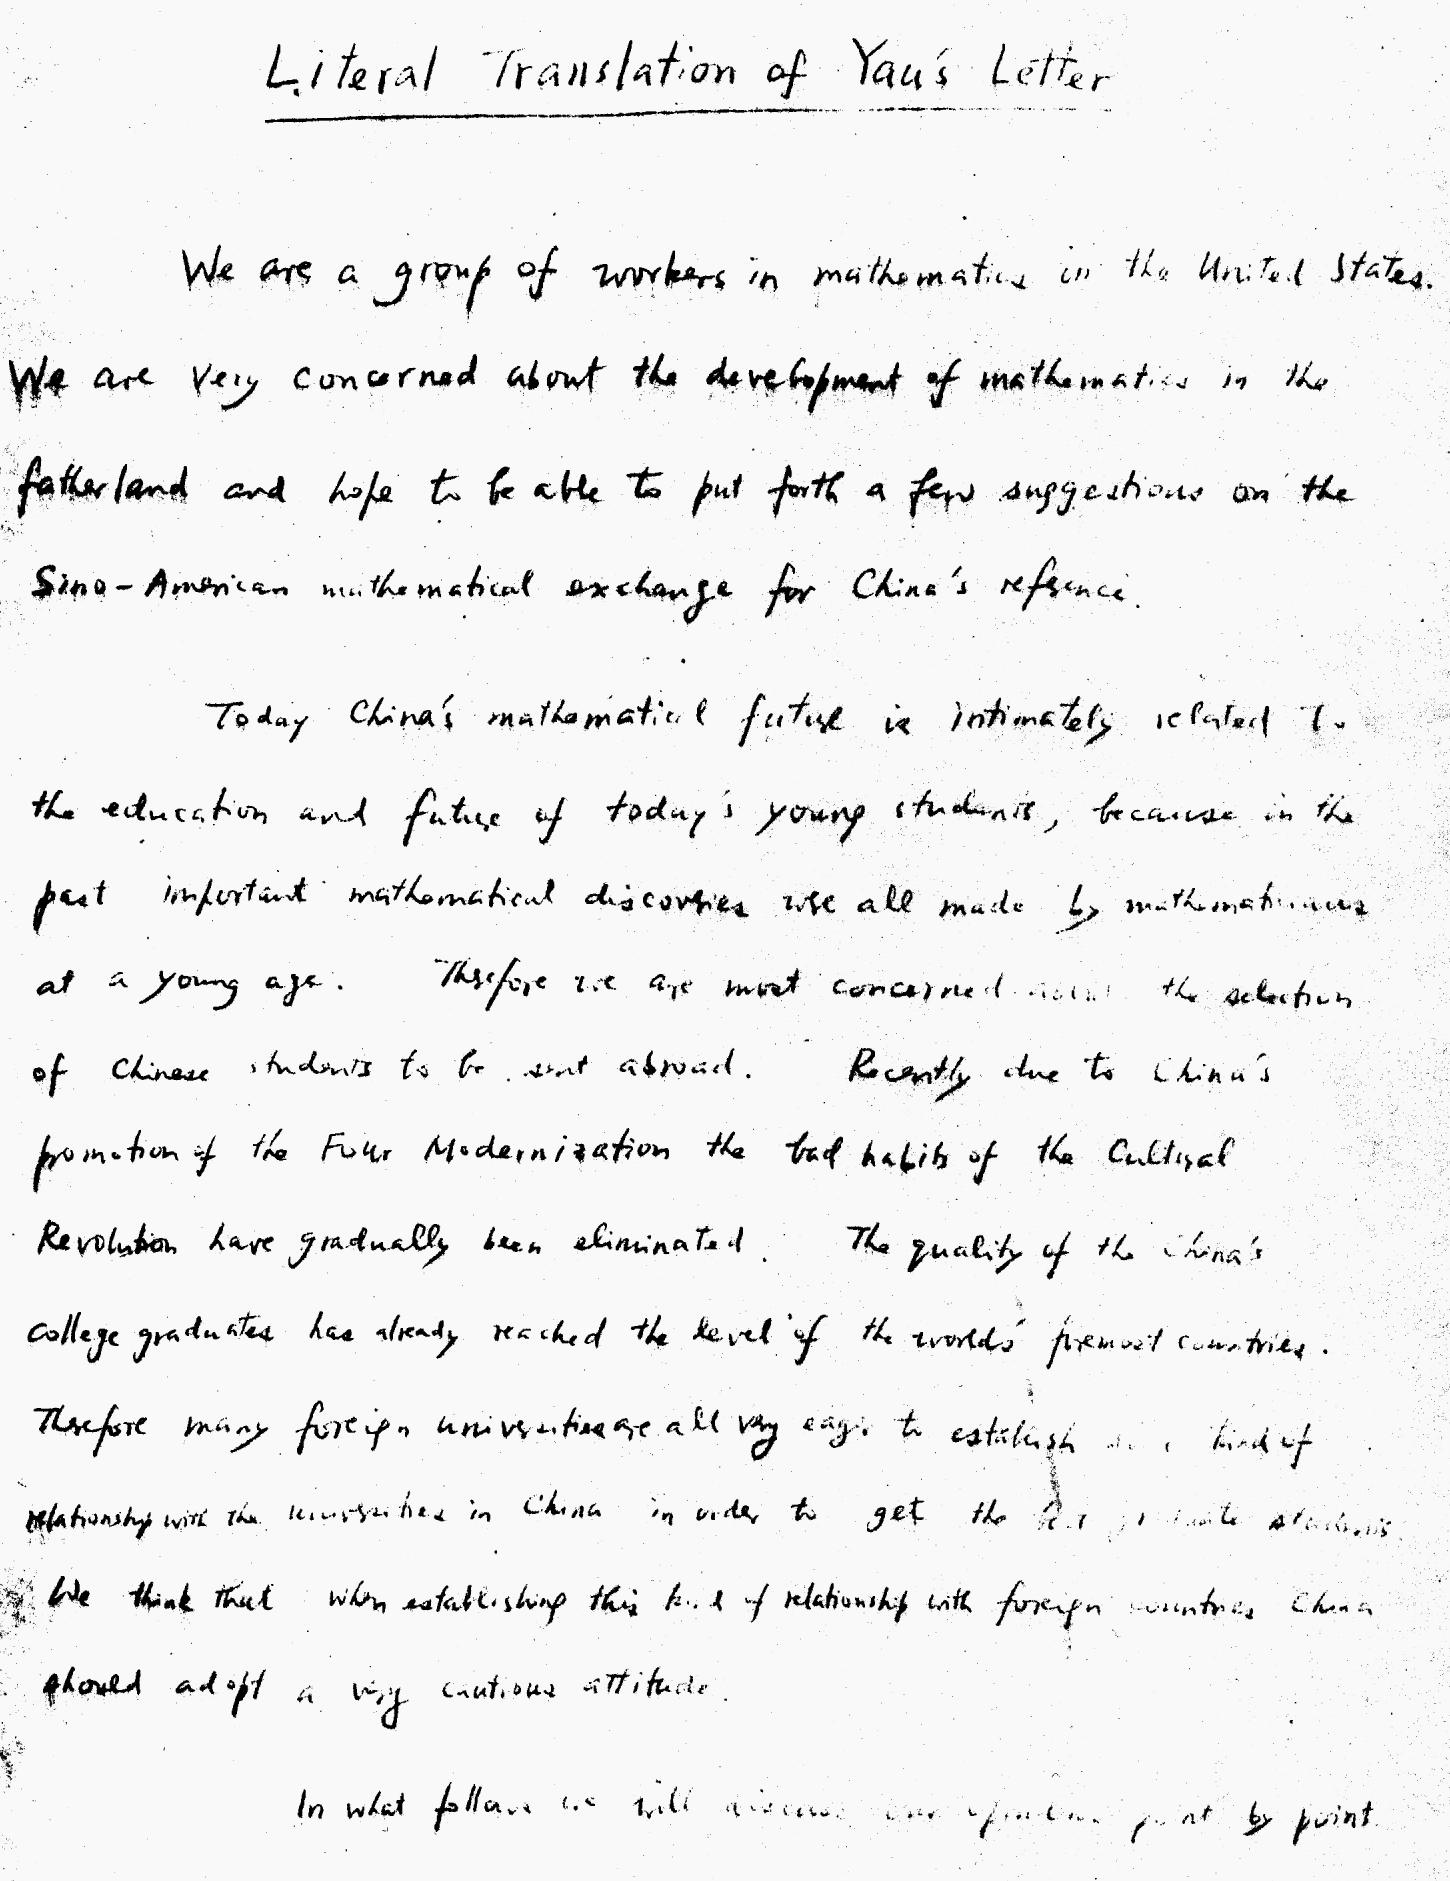 Literal Translation of Yau's Letter
We are a group of workers in mathematics in the United States.
We are very concerned about the development of mathematics in the
fatherland and hope to be able to put forth a few suggestions on the
Sino-American mathematical exchange for China's reference.
Today China's mathematical future is intimately related to
the education and future of today's young students, because in the
past important mathematical discoveries were all made by mathematicians
at a young age. Therefore we are most concerned about the selection
of Chinese students to be sent abroad. Recently due to China's
promotion of the Four Modernization the bad habits of the Cultural
Revolution have gradually been eliminated. The quality of the China's
college graduates has already reached the level of the world's foremost countries.
Therefore many foreign universities are all very eager to establish kind of
relationship with the universities in China in order to get the best graduate students.
We think that when establishing this kind of relationship with foreign countries China
should adopt a very cautious attitude.
In what follows we will discuss our opinions point by point